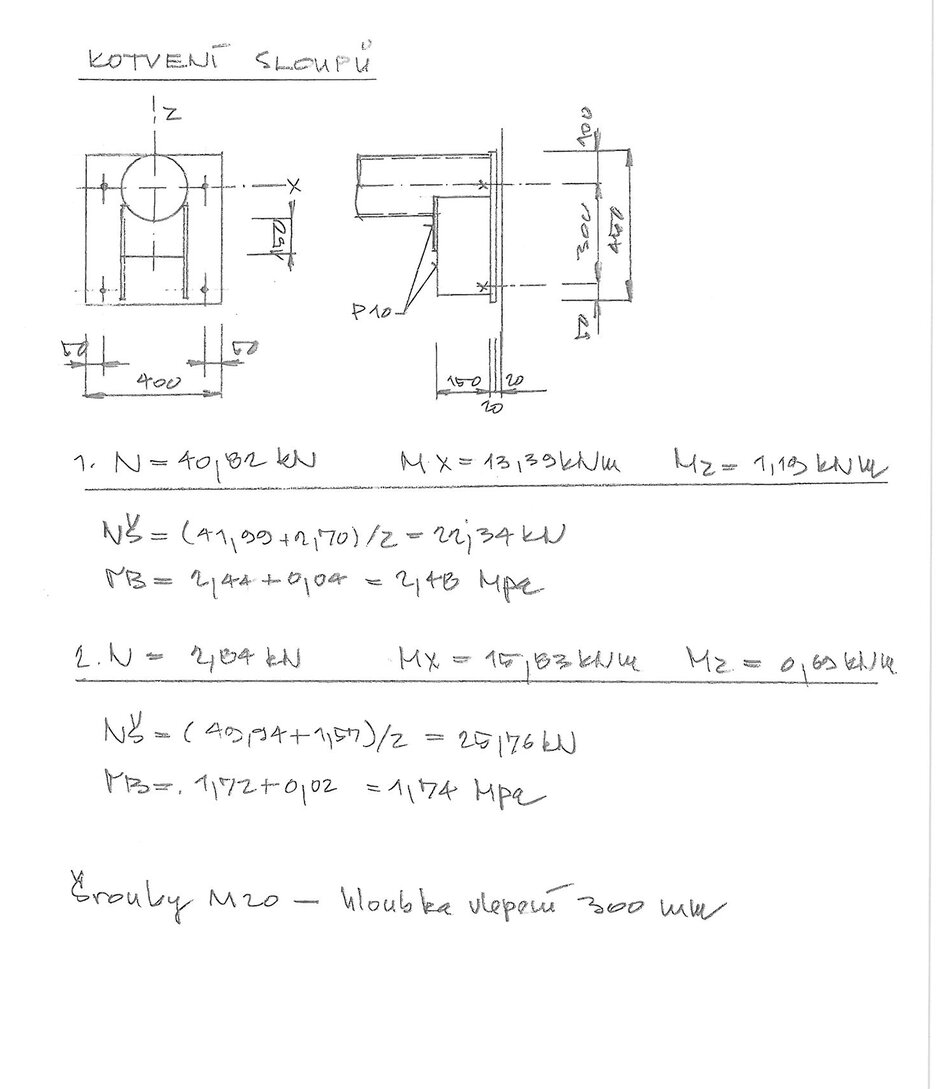 KOTVENÍ SLOUPŮ
Z
X
150
50
50
400
P10
150
20
20
100
300
450
50
1. N = 40,82 kN MX = 13,39 kNm MZ = 1,19 kNm
NŠ = (41,99+2,70)/2 = 22,34 kN
ΓB = 2,44+0,04 = 2,48 Mpa
2. N = 2,84 kN MX = 15,83 kNm MZ = 0,69 kNm
NŠ = (49,94+1,57)/2 = 25,76 kN
ΓB =. 1,72+0,02 = 1,74 Mpa
Šrouby M20 – hloubka vlepení 300 mm